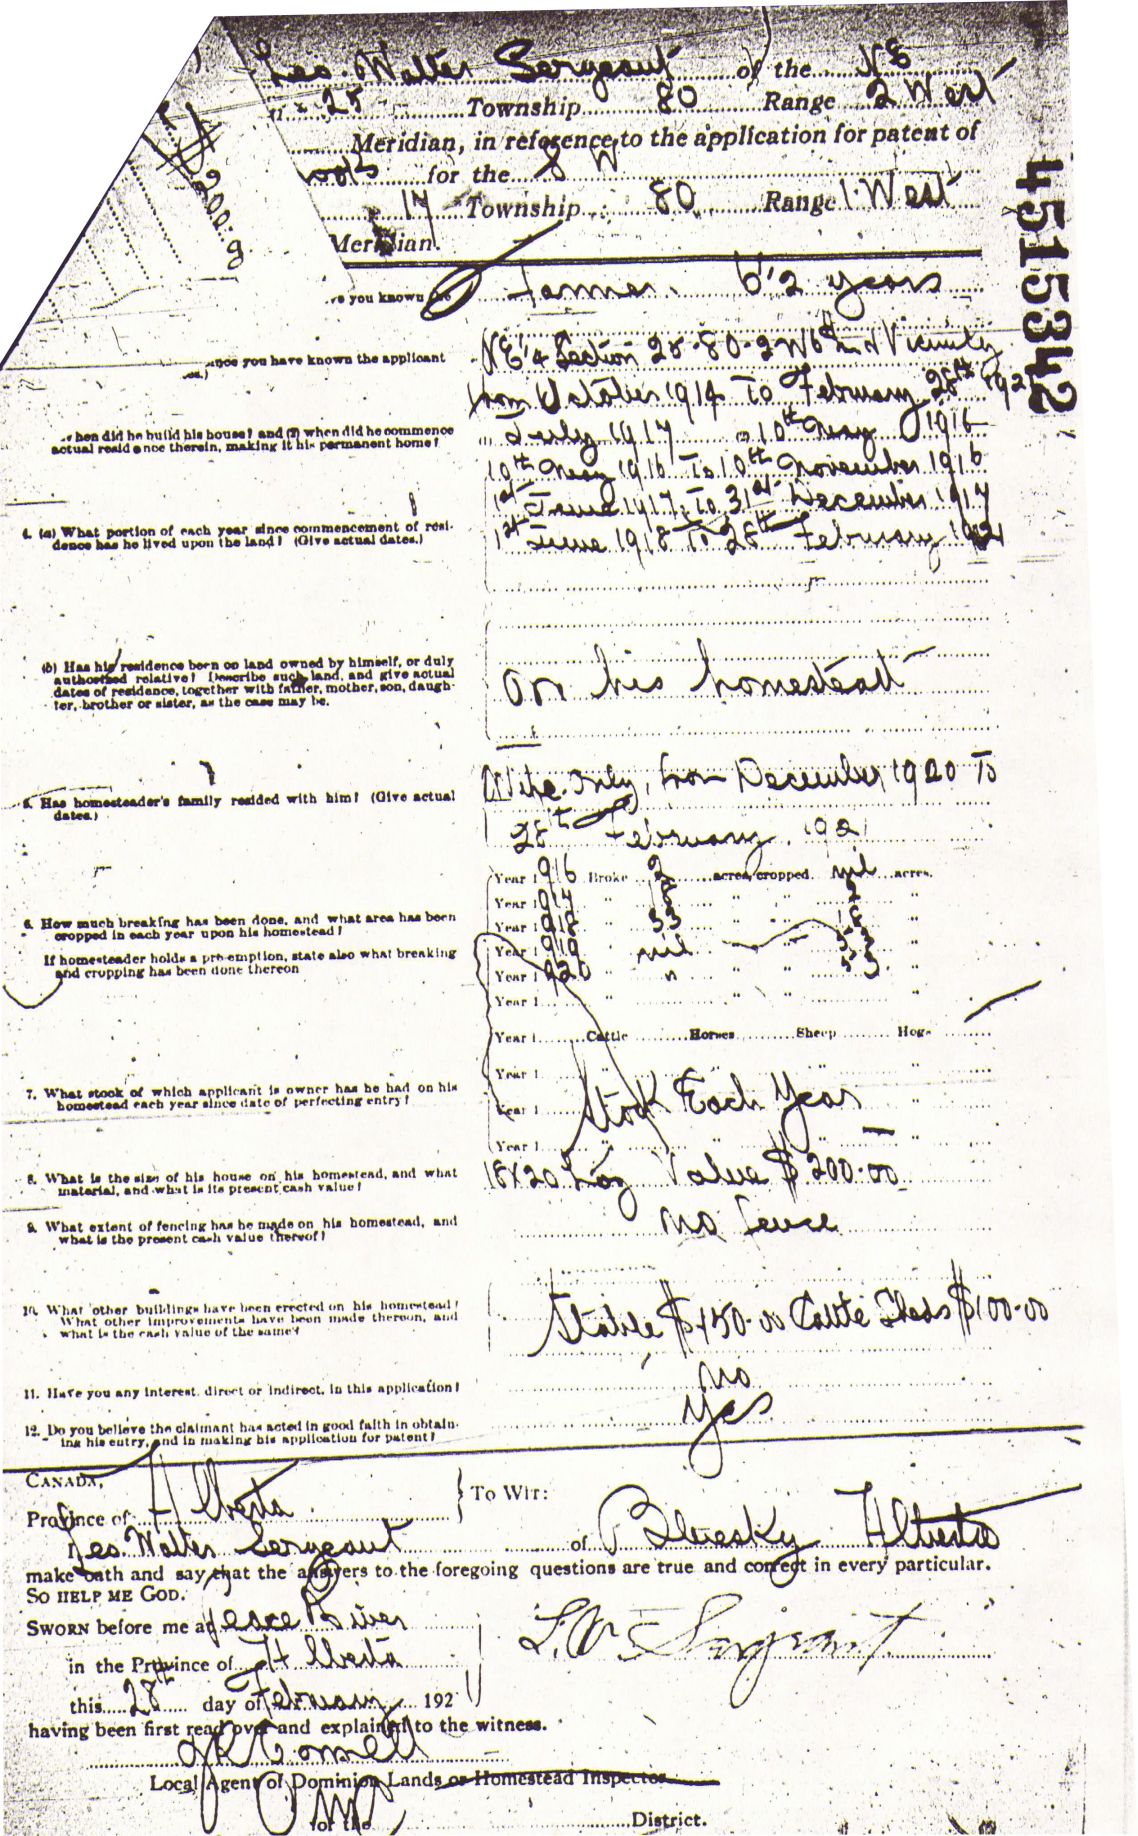 Leo. Walter Sergeant of the NE
25 Township 80 Range 2 West
Meridian, in reference to the application for patent of
for the S W
17 Township 80 Range 1 West
Meridian.
4515342
$200.
you known Farmer. 6 1/2 years
you have known the applicant NE 1/4 Section 25-80-2 W6 and Vicinity
from October 1914 To February 28th 192
hen did he build his house? and (2) when did he commence
actual residence therein, making it his permanent home?
July 1917 10th May 1916
10th May 1916 To 10th November 1916
1st June 1917 To 31st December 1917
4. (a) What portion of each year since commencement of resi-
dence has he lived upon the land? (Give actual dates.)
1st June 1918 To 28th February 1921
(b) Has his residence been on land owned by himself, or duly
authorized relative? Describe such land, and give actual
dates of residence, together with father, mother, son, daugh-
ter, brother or sister, as the case may be.
On his homestead
5. Has homesteader's family resided with him? (Give actual
dates.)
Wife only, from December 1920 To
28th February 1921
6. How much breaking has been done, and what area has been
cropped in each year upon his homestead?
If homesteader holds a pre-emption, state also what breaking
and cropping has been done thereon
Year 1916 Broke 2 acres, cropped nil acres.
Year 1917 " "
Year 1918 " 33 " "
Year 1919 " nil "
Year 1920 " " "
Year 1 " " "
Year 1 Cattle Horses Sheep Hogs
Year 1
7. What stock of which applicant is owner has he had on his
homestead each year since date of perfecting entry?
Year 1 Stock Each Year
Year 1
8. What is the size of his house on his homestead, and what
material, and what is its present cash value?
18x20 Log Value $200.00
9. What extent of fencing has he made on his homestead, and
what is the present cash value thereof?
no fence
10. What other buildings have been erected on his homestead?
What other improvements have been made thereon, and
what is the cash value of the same?
Stable $150.00 Cattle Sheds $100.00
11. Have you any interest, direct or indirect, in this application?
No
12. Do you believe the claimant has acted in good faith in obtain-
ing his entry, and in making his application for patent?
Yes
CANADA,
Province of Alberta } To Wit:
Leo. Walter Sergeant of Bluesky Alberta
make oath and say that the answers to the foregoing questions are true and correct in every particular.
SO HELP ME GOD.
SWORN before me at Peace River
L. W. Sergeant
in the Province of Alberta
this 28th day of February 192
having been first read over and explained to the witness.
Local Agent of Dominion Lands or Homestead Inspector
for the District.